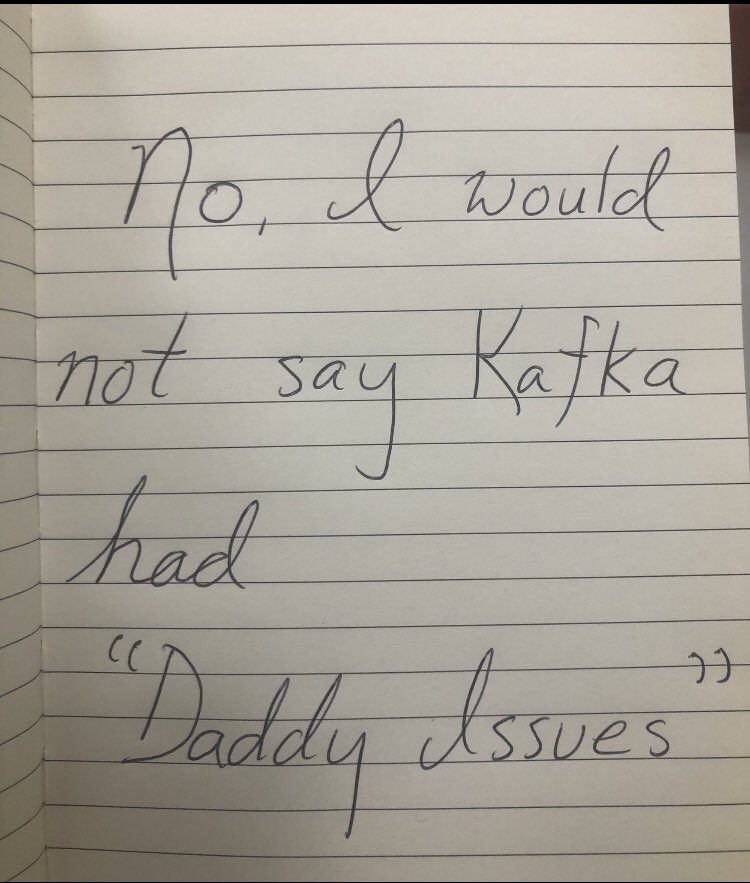 No, I would
not say Kafka
had
“Daddy Issues”